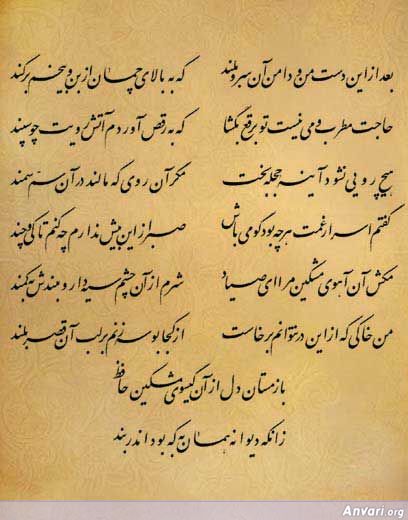 بعد از این دست من و دامن آن سرو بلند که به بالای چمان از بن و بیخم برکند
حاجت مطرب و می نیست تو برقع بگشا که به رقص آوردم آتش رویت چو سپند
هیچ رویی نشود آینه حجله بخت مگر آن روی که مالند در آن سم سمند
گفتم اسرار غمت هر چه بود گو می‌باش صبر از این بیش ندارم چه کنم تا کی و چند
مکش آن آهوی مشکین مرا ای صیاد شرم از آن چشم سیه دار و مبندش به کمند
من خاکی که از این در نتوانم برخاست از کجا بوسه زنم بر لب آن قصر بلند
باز مستان دل از آن گیسوی مشکین حافظ
زانکه دیوانه همان به که بود اندر بند
Anvari.org